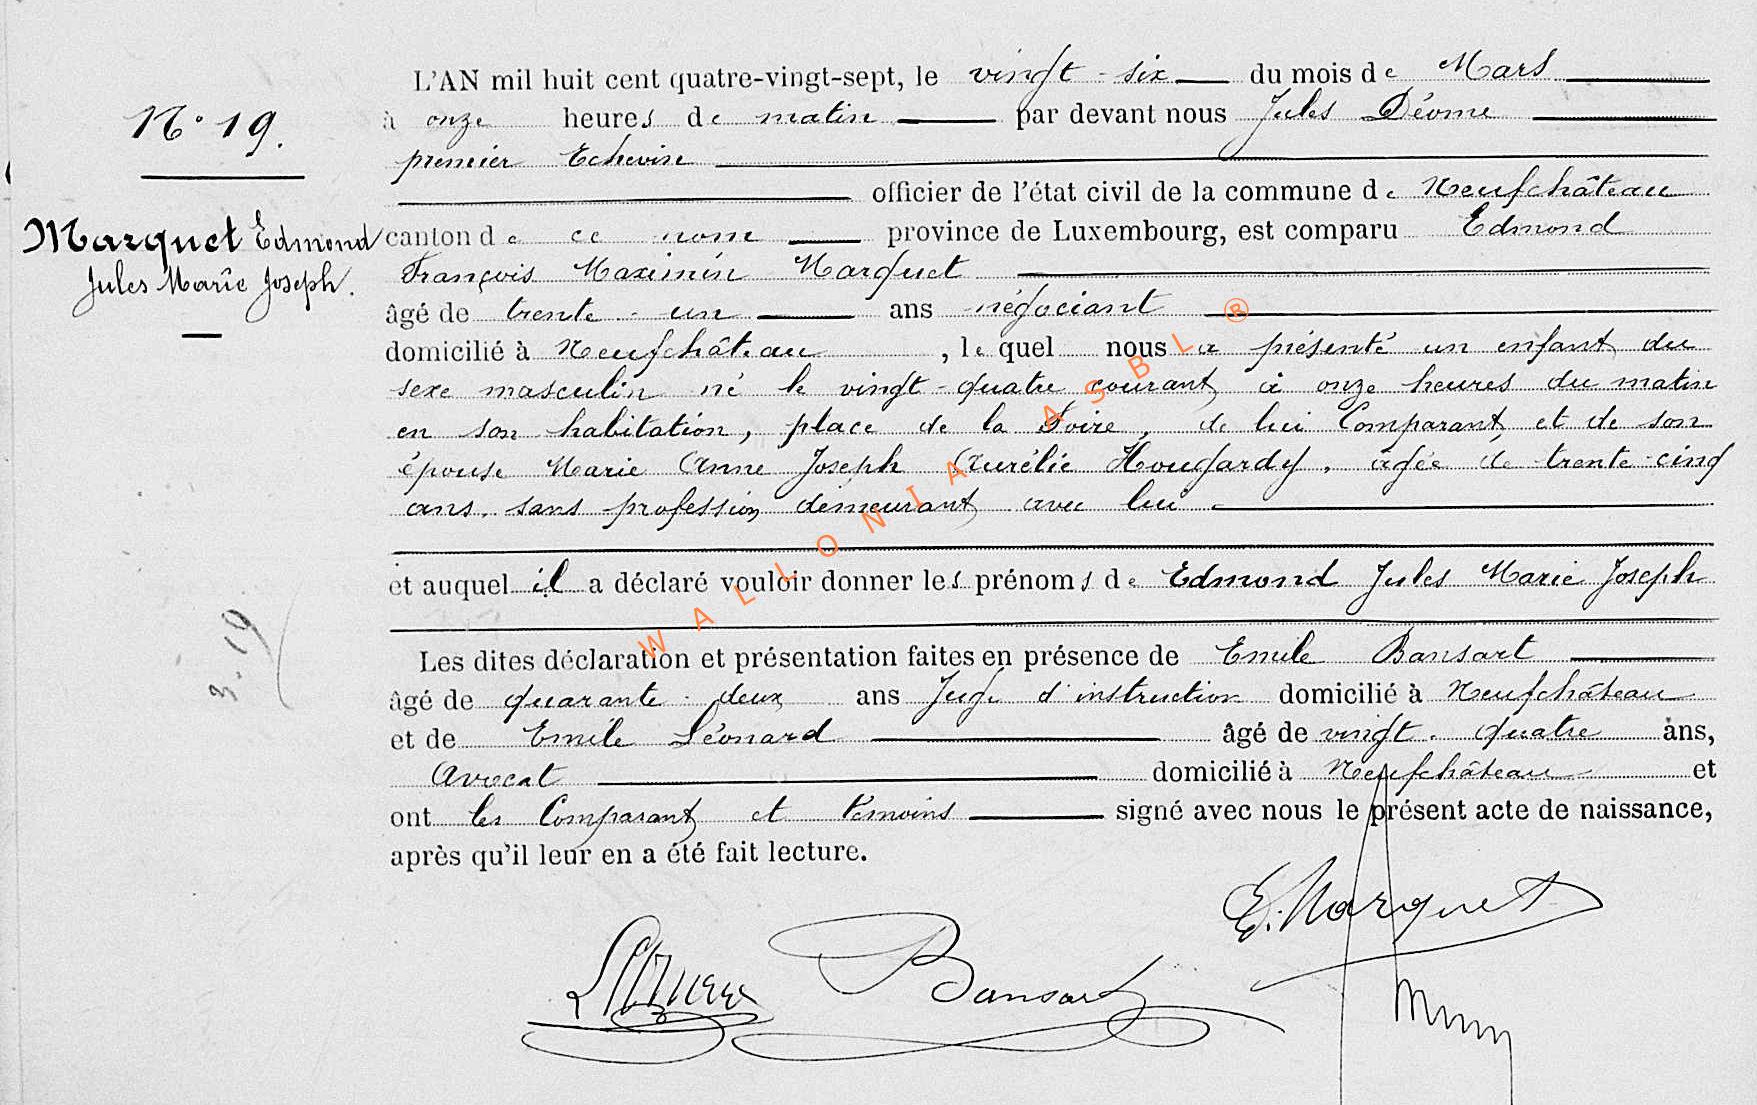 N° 19.
Marquet Edmond
Jules Marie Joseph.
3. 19
L'AN mil huit cent quatre-vingt-sept, le vingt-six du mois de Mars
à onze heures de matin par devant nous Jules Déome
premier Echevin
officier de l'état civil de la commune de Neufchâteau
canton de ce nom province de Luxembourg, est comparu Edmond
François Maximin Marquet
âgé de trente-un ans négociant
domicilié à Neufchâteau, lequel nous a présenté un enfant du
sexe masculin né le vingt-quatre courant, à onze heures du matin
en son habitation, place de la Foire, de lui Comparant, et de son
épouse Marie Anne Joseph Aurélie Hougardy, âgée de trente-cinq
ans, sans profession, demeurant avec lui
et auquel il a déclaré vouloir donner les prénoms de Edmond Jules Marie Joseph
Les dites déclaration et présentation faites en présence de Emile Bansart
âgé de quarante-deux ans Juge d'instruction domicilié à Neufchâteau
et de Emile Léonard âgé de vingt-quatre ans,
Avocat domicilié à Neufchâteau et
ont les Comparant et témoins signé avec nous le présent acte de naissance,
après qu'il leur en a été fait lecture.
E. Marquet
Bansart
WALLONIA ASBL ®